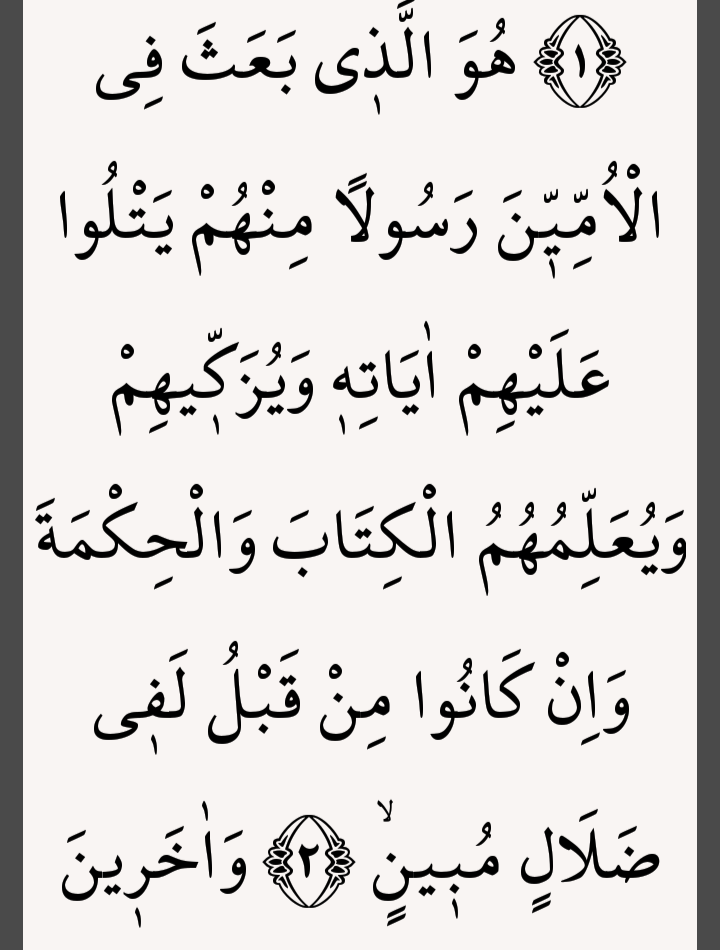 ﴿١﴾ هُوَ الَّذٖى بَعَثَ فِى
الْاُمِّيّٖنَ رَسُولًا مِنْهُمْ يَتْلُوا
عَلَيْهِمْ اٰيَاتِهٖ وَيُزَكّٖيهِمْ
وَيُعَلِّمُهُمُ الْكِتَابَ وَالْحِكْمَةَ
وَاِنْ كَانُوا مِنْ قَبْلُ لَفٖى
ضَلَالٍ مُبٖينٍۙ ﴿٢﴾ وَاٰخَرٖينَ